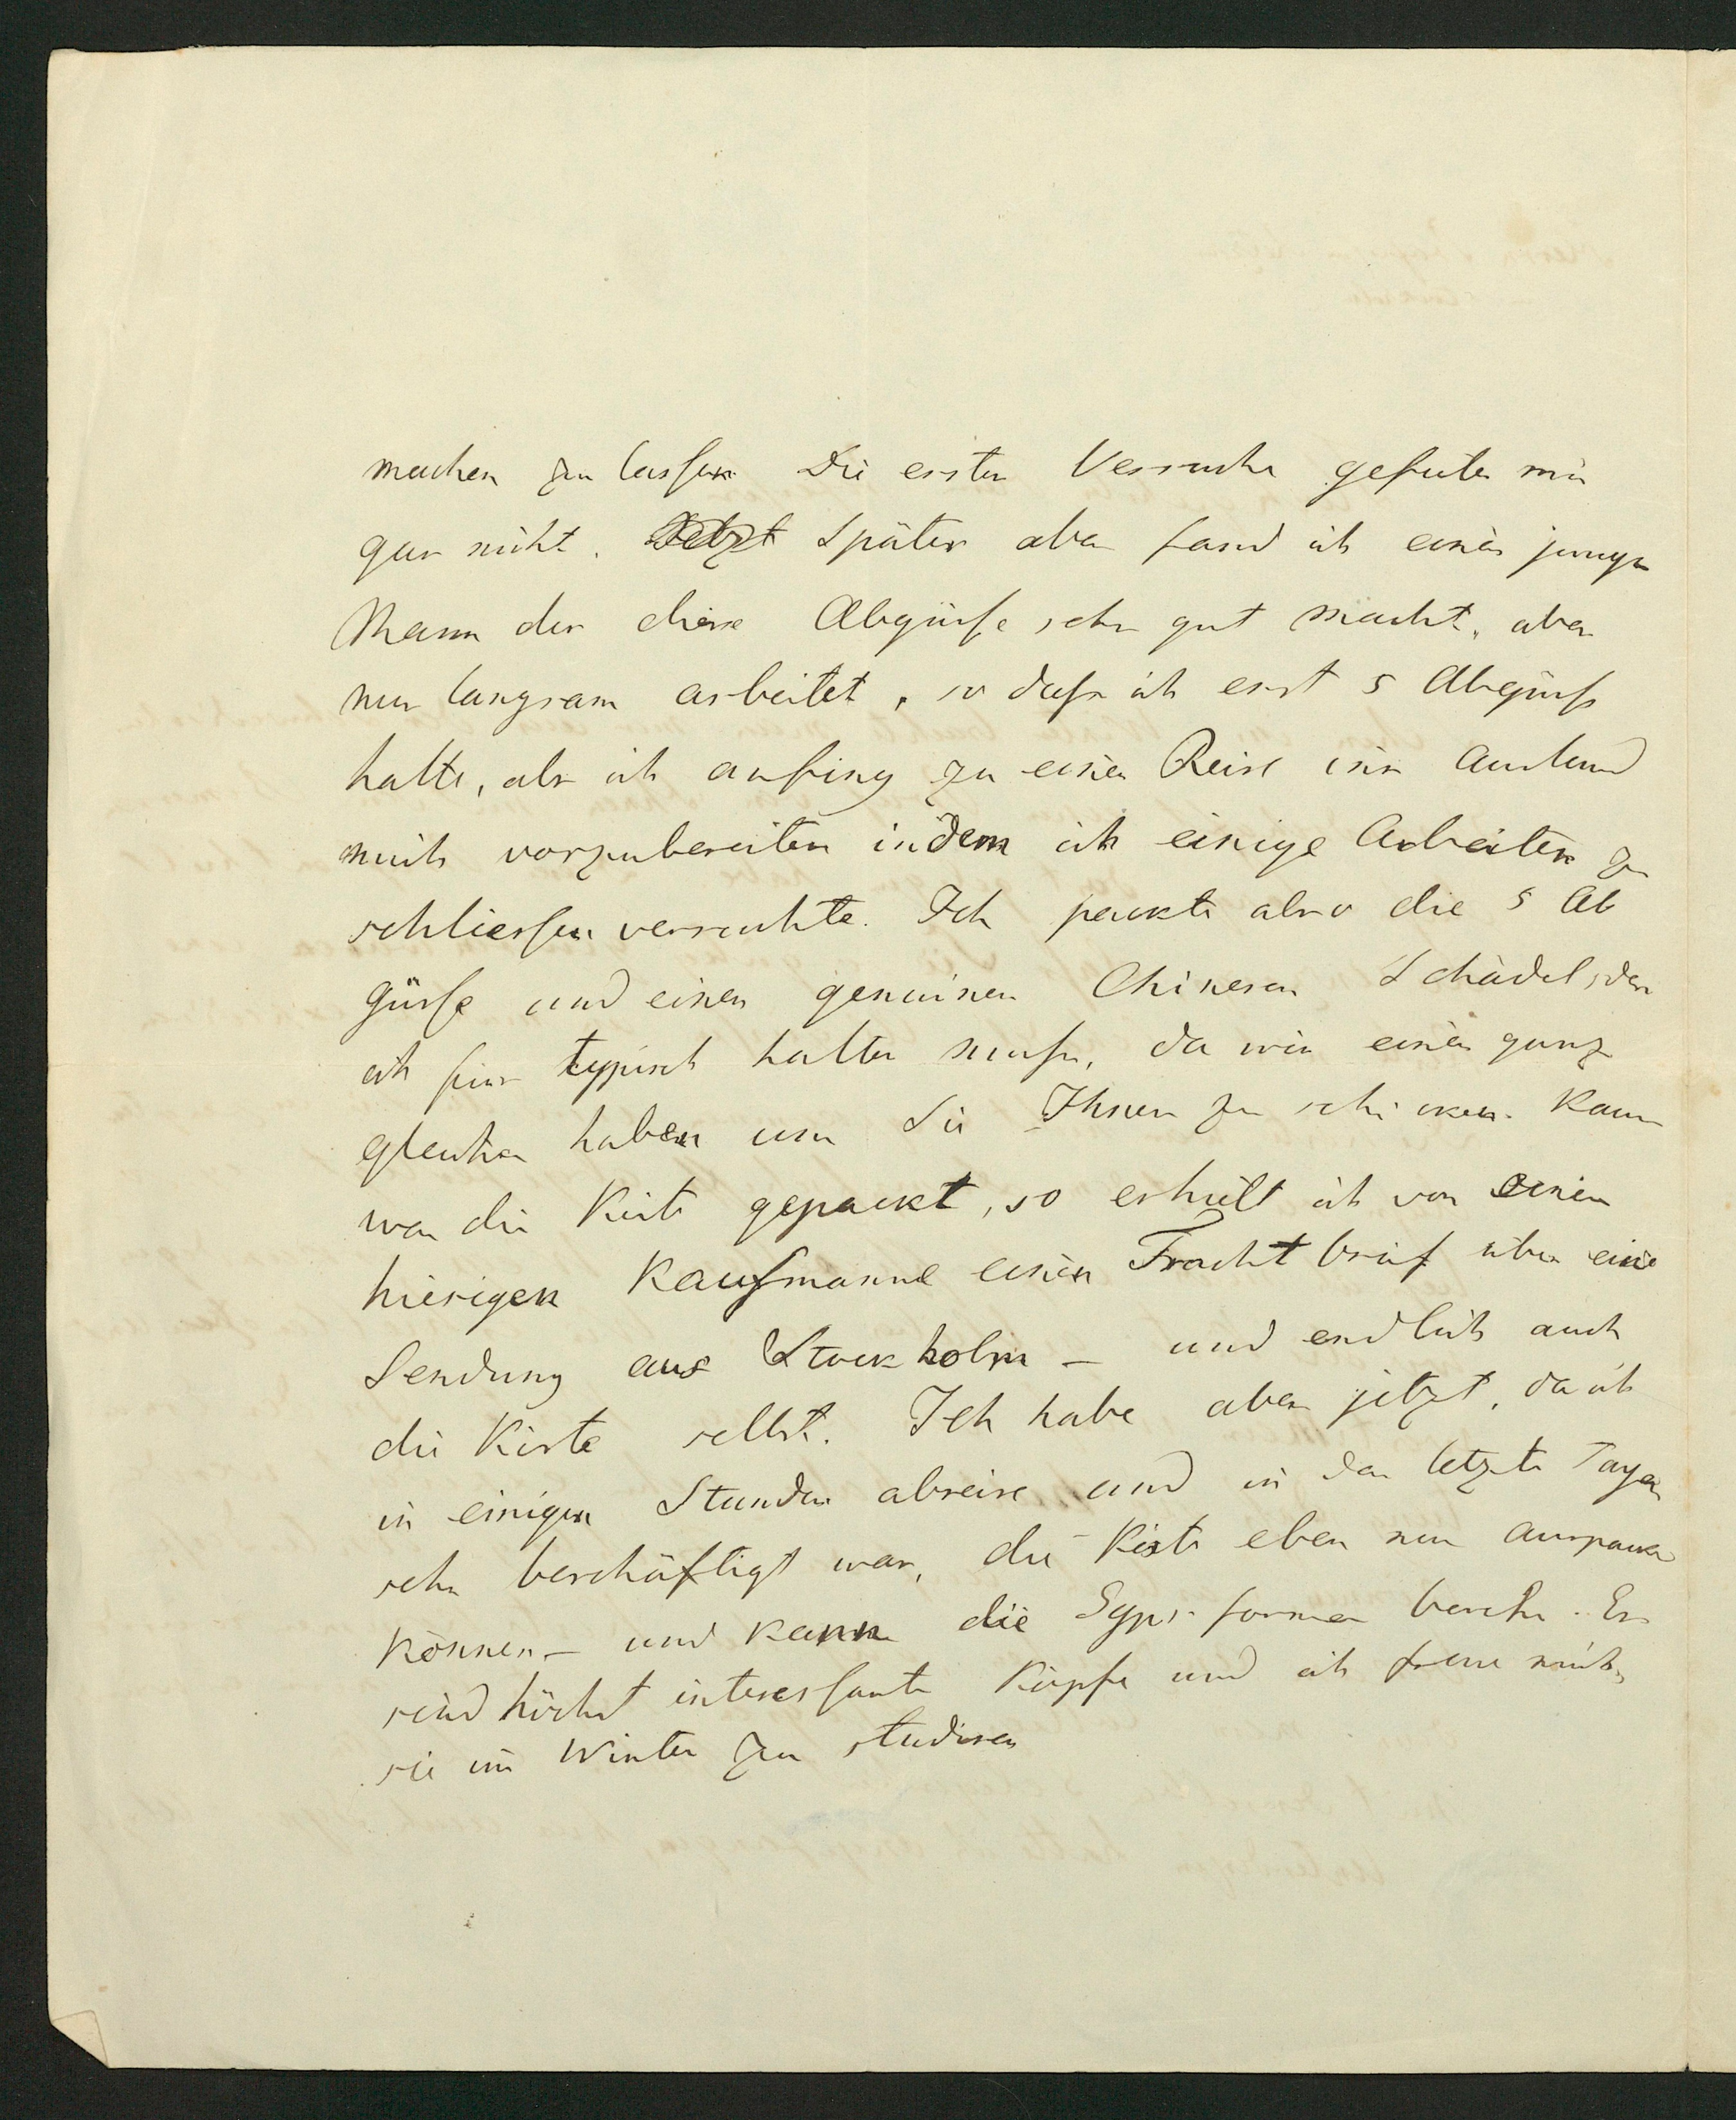 machen zu lassen. Die ersten Versuche gefielen mir
gar nicht. Jetzt Später aber fand ich einen jungen
Mann der diese Abgüsse sehr gut macht, aber
nur langsam arbeitet, so dass ich erst 5 Abgüsse
hatte, als ich anfing zu einer Reise ins Ausland
mich vorzubereiten indem ich einige Arbeiten zu
schliessen versuchte. Ich packte also die 5 Ab
güsse und einen genuinen Chinesen Schädel, den
ich für typisch halten muss, da wir einen ganz
gleichen haben um Sie Ihnen zu schicken. Kaum
war die Kiste gepackt, so erhielt ich von einem
hiesigen Kaufmanne einen Frachtbrief über eine
Sendung aus Stockholm – und endlich auch
die Kiste selbst. Ich habe aber jetzt, da ich
in einigen Stunden abreise und in den letzten Tagen
sehr beschäftigt war, die Kiste eben nur auspacken
können – und kaum die Gyps-formen besehn. Es
sind höchst interessante Köpfe und ich freue mich,
sie im Winter zu studiren